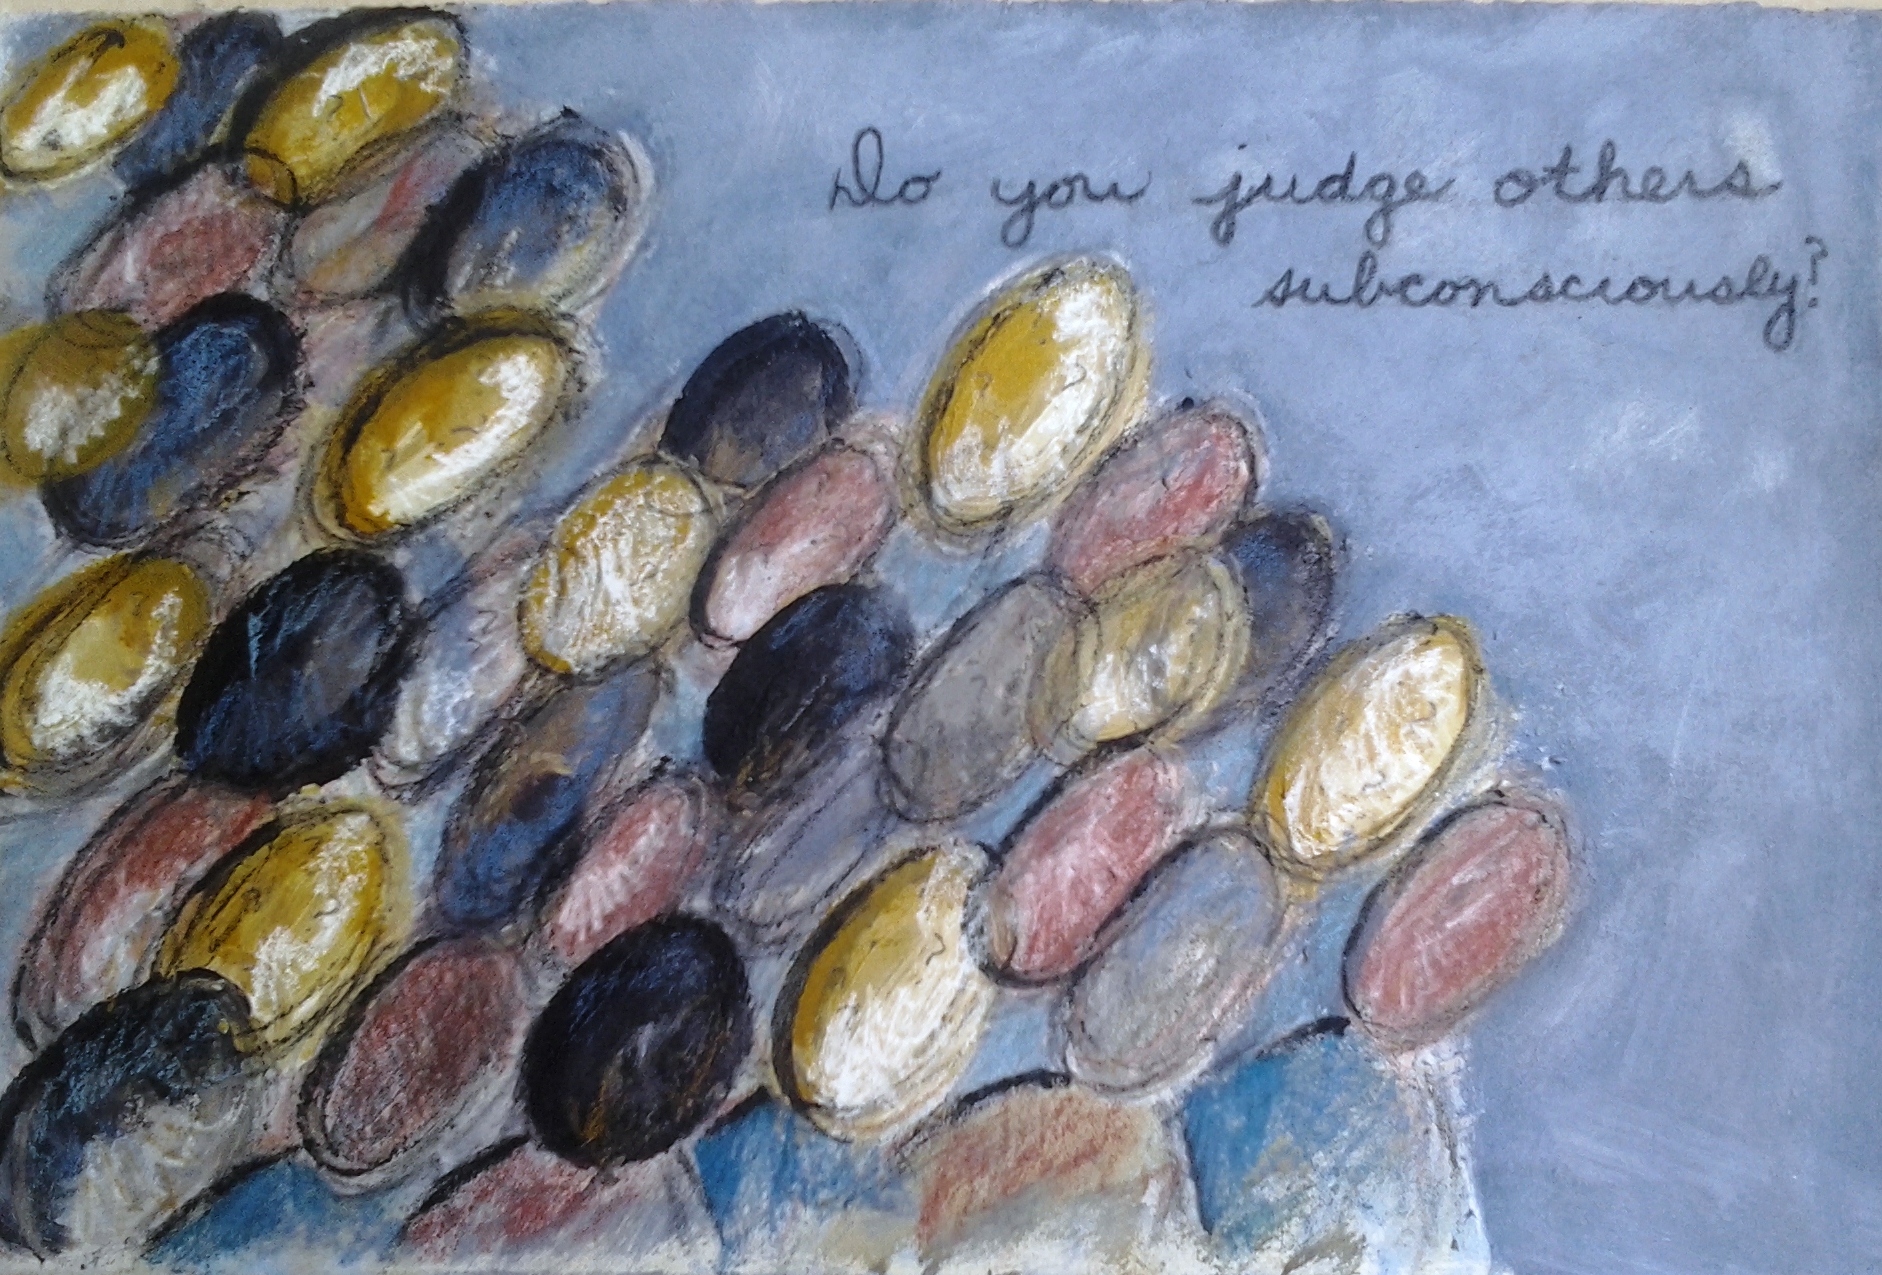 Do you judge others
subconsciously?